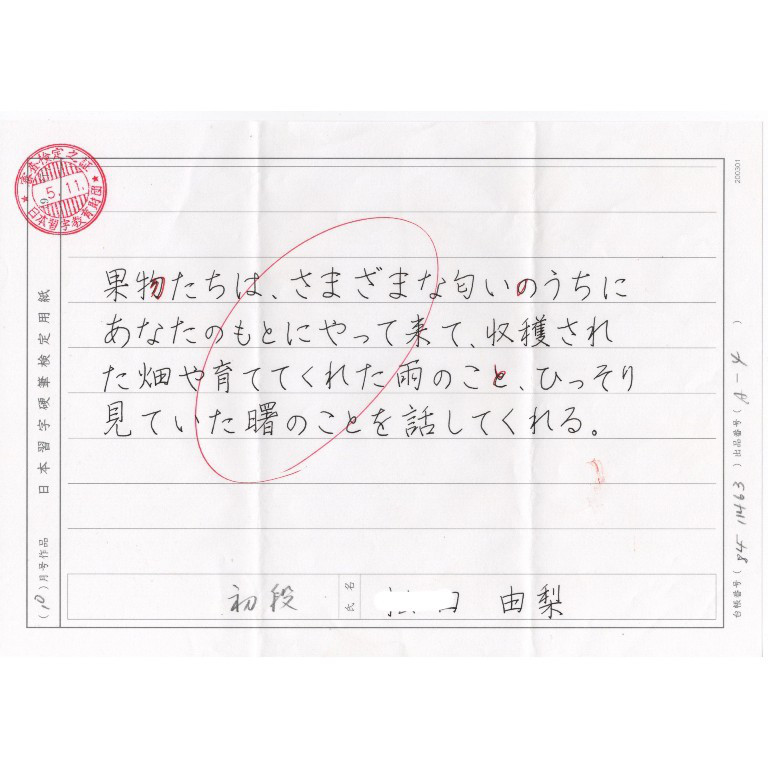 審査検定之証
5.11.
日本習字教育財団
200301
果物たちは、さまざまな匂いのうちに
あなたのもとにやって来て、収穫され
た畑や育ててくれた雨のこと、ひっそり
見ていた曙のことを話してくれる。
初段
氏名
由梨
(10)月号作品 日本習字硬筆検定用紙
台帳番号(84-11463)出品番号(A-4)